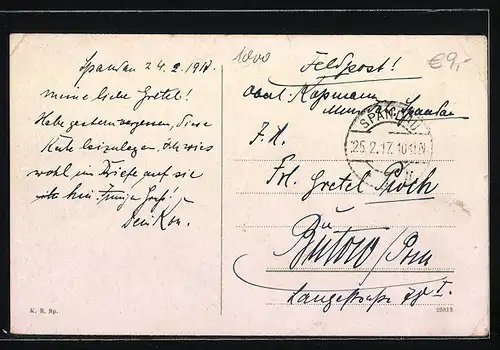 Spandau 24.2.1917.
meine liebe Gretel!
Habe gestern vergessen, diese
Karte beizulegen. Ich wies
wohl im Briefe auf sie
hin.
Dein Kon.
1000
€9,-
Feldpost!
Kopmann
Spandau
SPANDAU
25.2.17.10-11V
F. A.
Frl. Gretel
Bütow/Pom
Langestraße I.
K. R. Sp.
25813